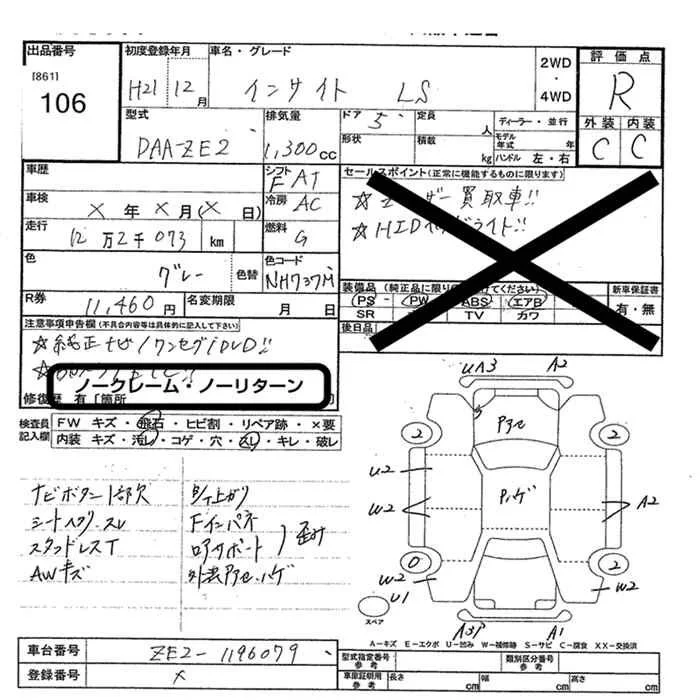 出品番号
[861]
106
初度登録年月
H21 12月
車名・グレード
インサイト LS
2WD
・
4WD
評価点
R
外装 内装
C C
型式
DAA-ZE2
排気量
1,300cc
ドア 5
形状
定員 人
積載 kg
ディーラー・並行
モデル年式 年
ハンドル 左・右
車歴
シフト FAT
車検
X 年 X 月 (X 日)
冷房 AC
走行
12万2千073 km
燃料 G
色
グレー
色替
色コード NH737M
R券
11,460円
名変期限 月 日
セールスポイント(正常に機能するものに限ります)
☆ユーザー買取車!!
☆HIDヘッドライト!!
装備品(純正品に限り○を付けてください)
PS PW ABS エアB
SR TV カワ
後日品
新車保証書
有・無
注意事項申告欄(不具合内容等は具体的に記入して下さい)
☆純正ナビ/ワンセグ/DVD!!
ノークレーム・ノーリターン
修復歴 有〔箇所
検査員記入欄
FW キズ・飛石・ヒビ割・リペア跡・×要
内装 キズ・汚レ・コゲ・穴・スレ・キレ・破レ
ナビボタン1部欠
シートヘタリ・スレ
スタッドレスT
AWキズ
Fインパネ
ロアサポート
歪み
UA3 A2
Pヌレ
2 2
U2
Pハゲ
W2 A2
0 2
W2 W2
U1
スペア
A3P A1
A-キズ E-エクボ U-凹み W-補修跡 S-サビ C-腐食 XX-交換済
車台番号
ZE2-1196079
登録番号
X
型式指定番号
参考
類別区分番号
参考
車庫証明用
参考
長さ cm
幅 cm
高さ cm